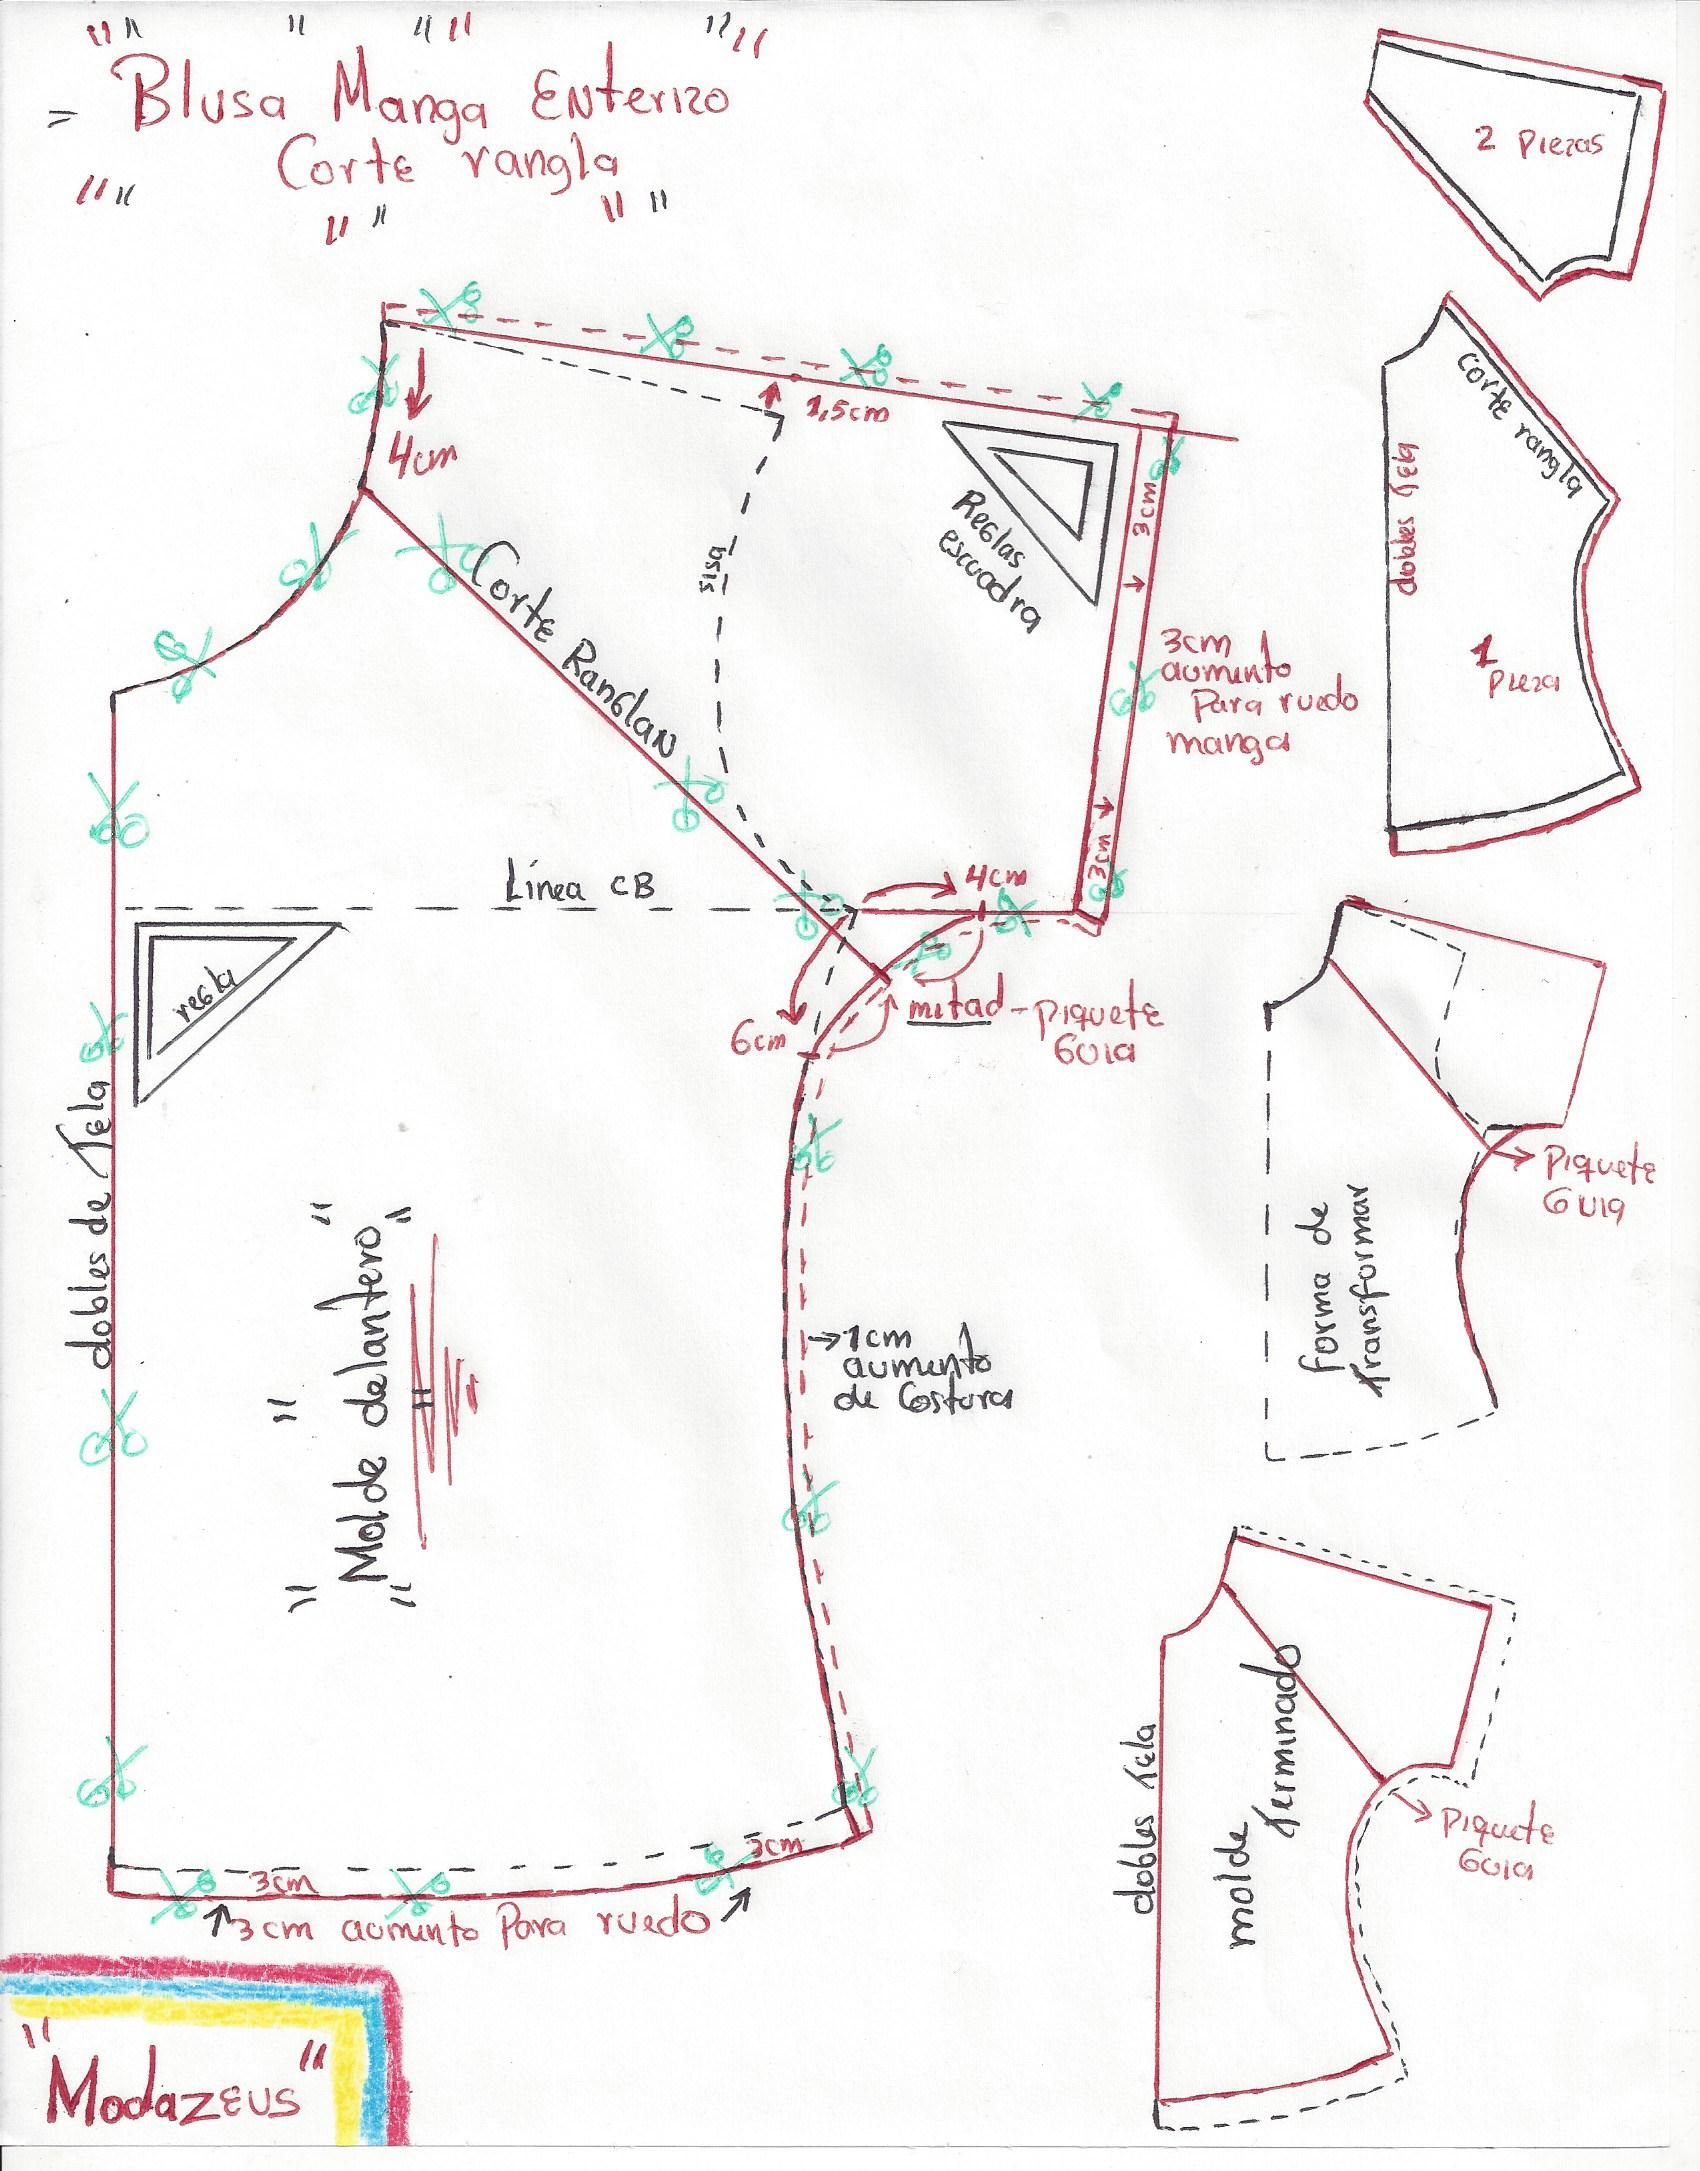 "Blusa Manga Enterizo
Corte rangla
4cm
1,5cm
sisa
Corte Ranglan
Reglas
escuadra
3cm
3cm
aumento
Para ruedo
manga
3cm
Línea CB
4cm
regla
6cm
mitad - Piquete
Guia
dobles de Tela
"Molde delantero"
→1cm
aumento
de Costura
3cm
3cm
3cm aumento Para ruedo
"Modazeus"
2 Piezas
corte rangla
dobles Tela
1
Pieza
Piquete
Guia
forma de
Transformar
dobles Tela
molde
Terminado
Piquete
Guia